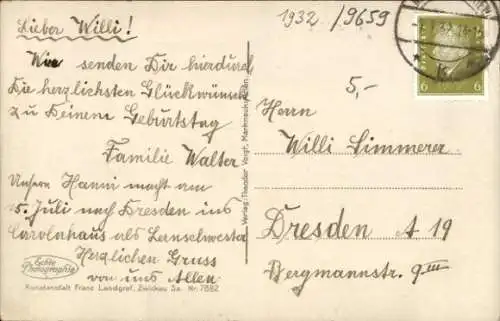 1932 / 9659
Lieber Willi!
Wir senden Dir hierdurch
die herzlichsten Glückwünsche
zu Deinem Geburtstag
Familie Walter
Unsere Hanni macht am
15. Juli nach Dresden ins
Carolahaus als Lernschwester
Herzlichen Gruss
von uns Allen.
Echte
Photographie
Kunstanstalt Franz Landgraf, Zwickau Sa. Nr. 7882
Verlag: Theodor Voigt, Markneukirchen
5,-
6 6
Herrn
Willi Simmerer
Dresden A 19
Bergmannstr. 9III